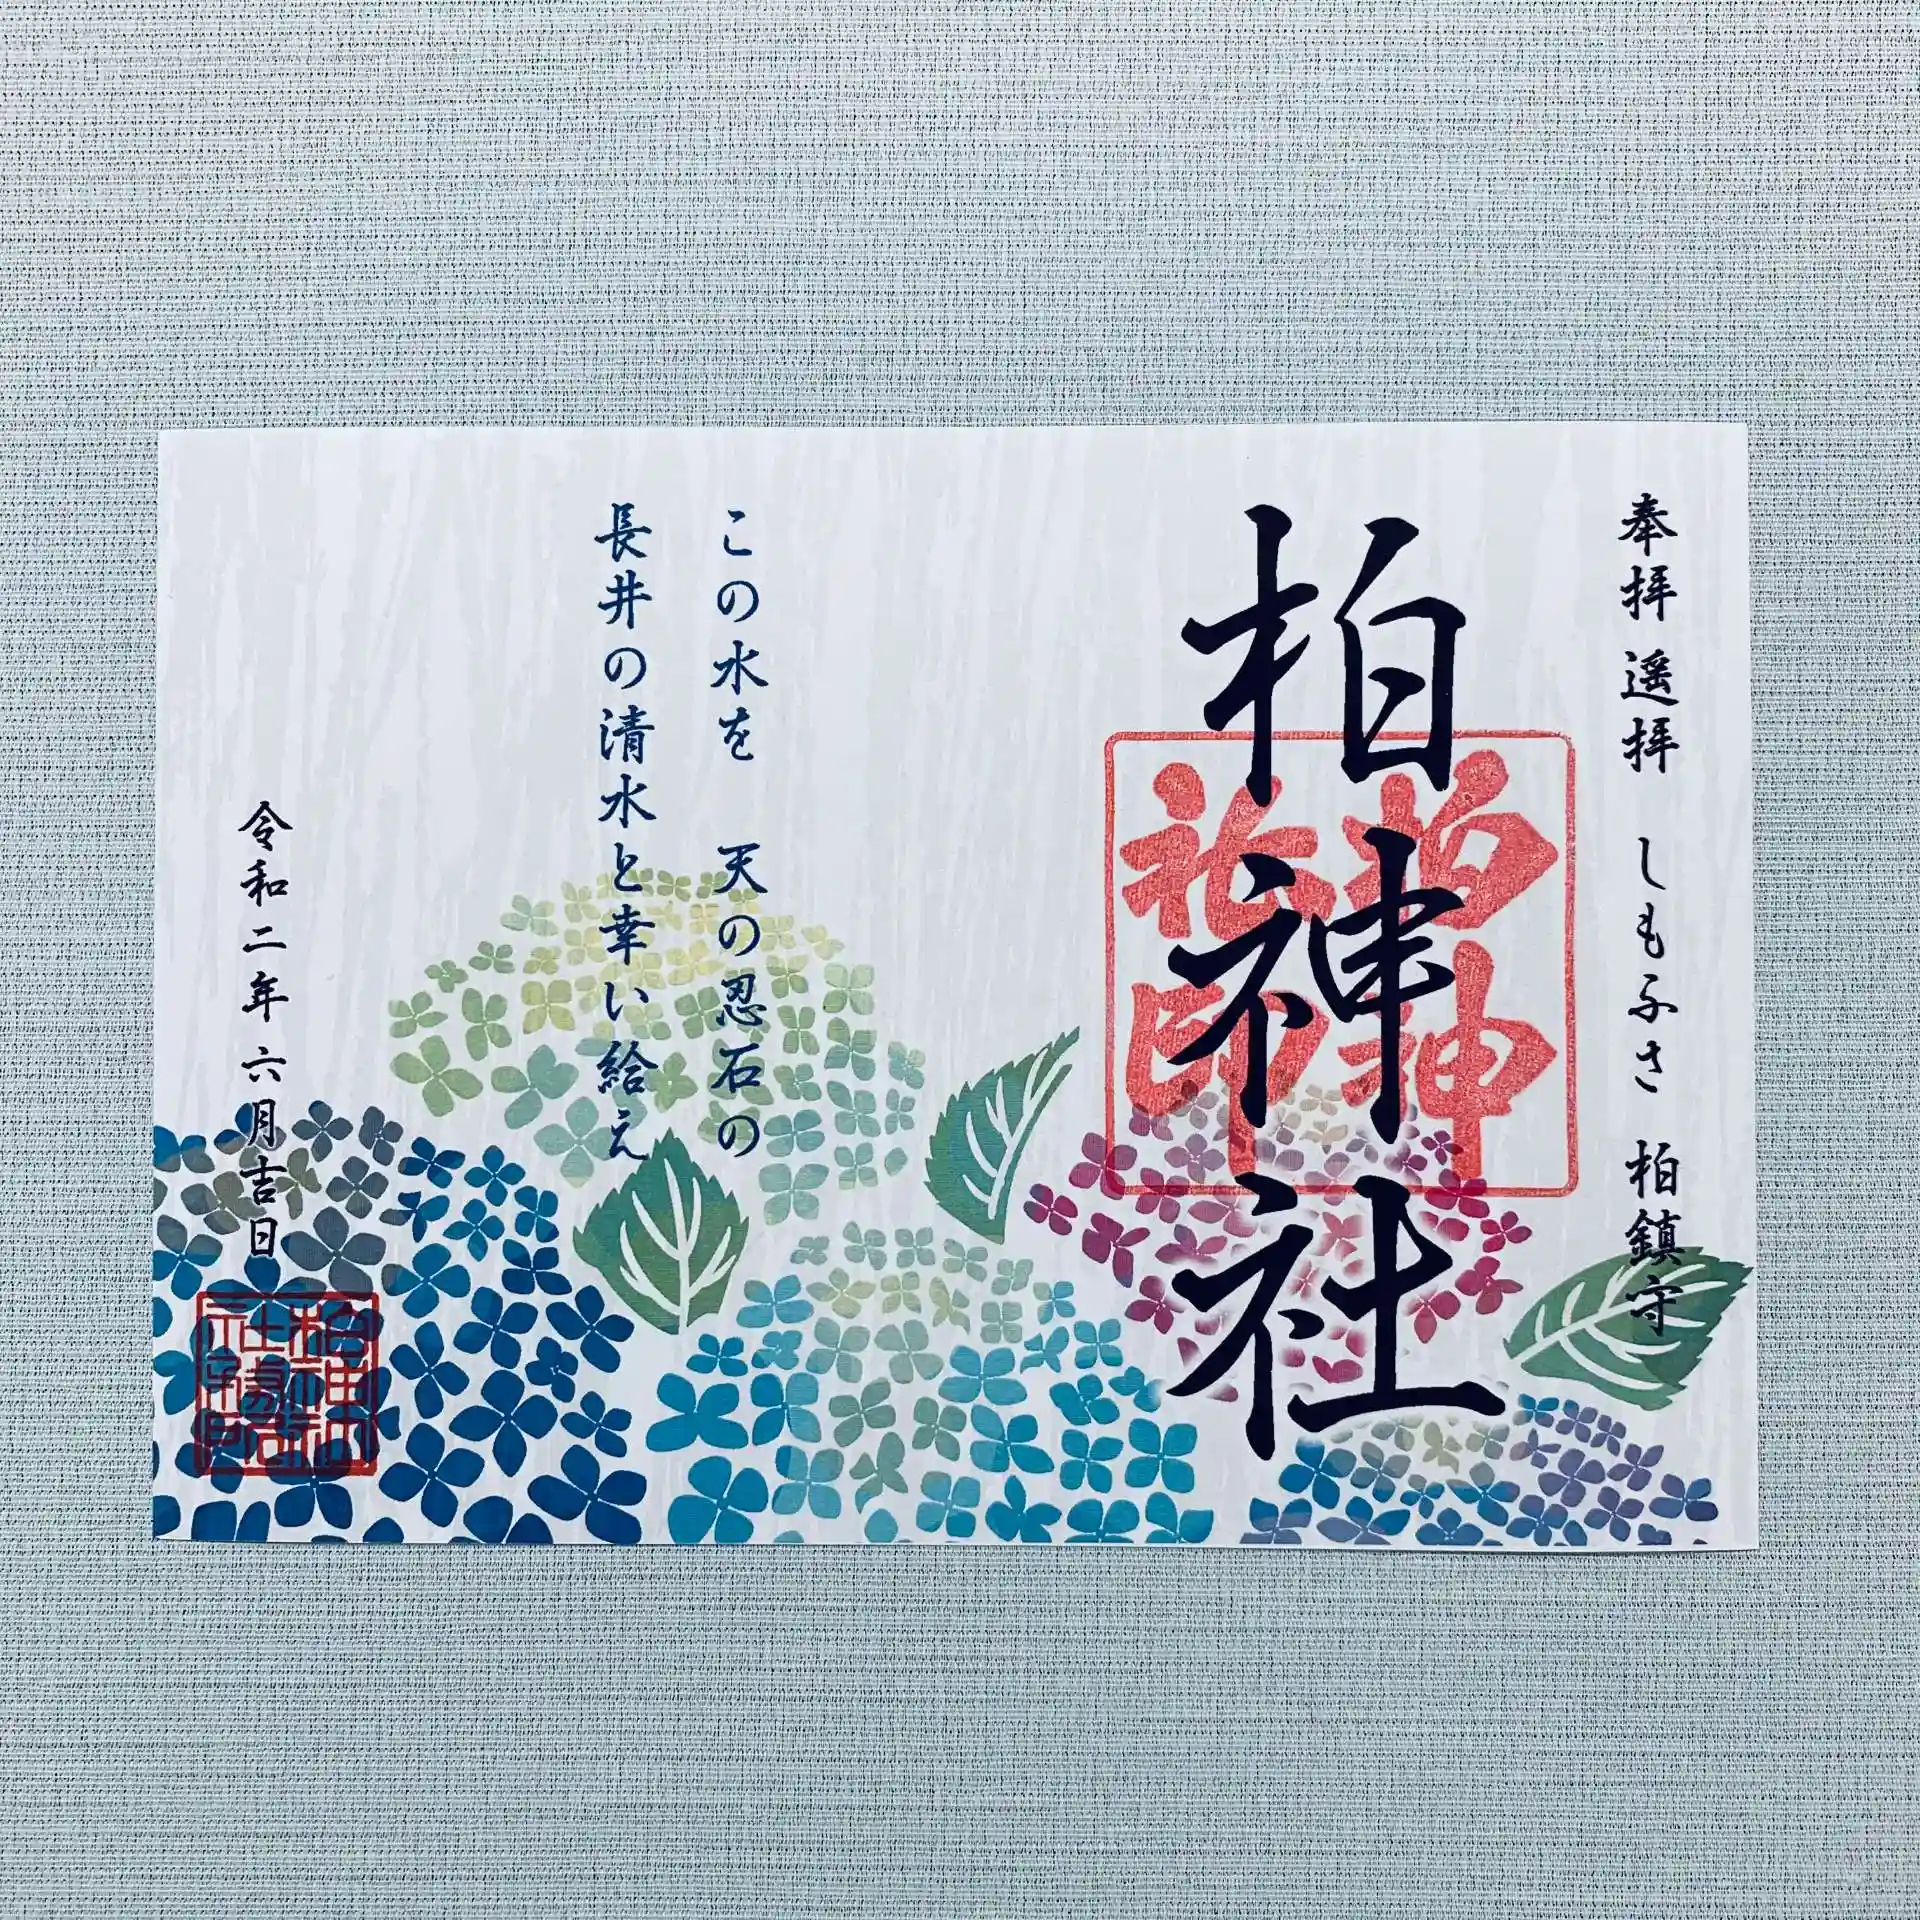 奉拝 遥拝 しもふさ 柏鎮守
柏神社
柏神
社印
この水を 天の忍石の
長井の清水と幸い給え
令和二年 六月吉日